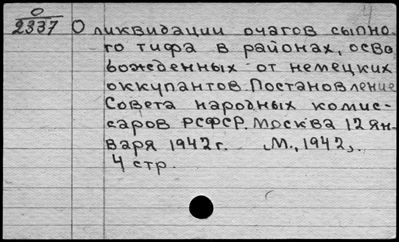 О
2337
О ликвидации очагов сыпно-
го тифа в районах, осво
вожденных от немецких
оккупантов. Постановление
Совета народных комис-
саров РСФСР. Москва 12 ян-
варя 1942 г. М., 1942г.
4 стр.